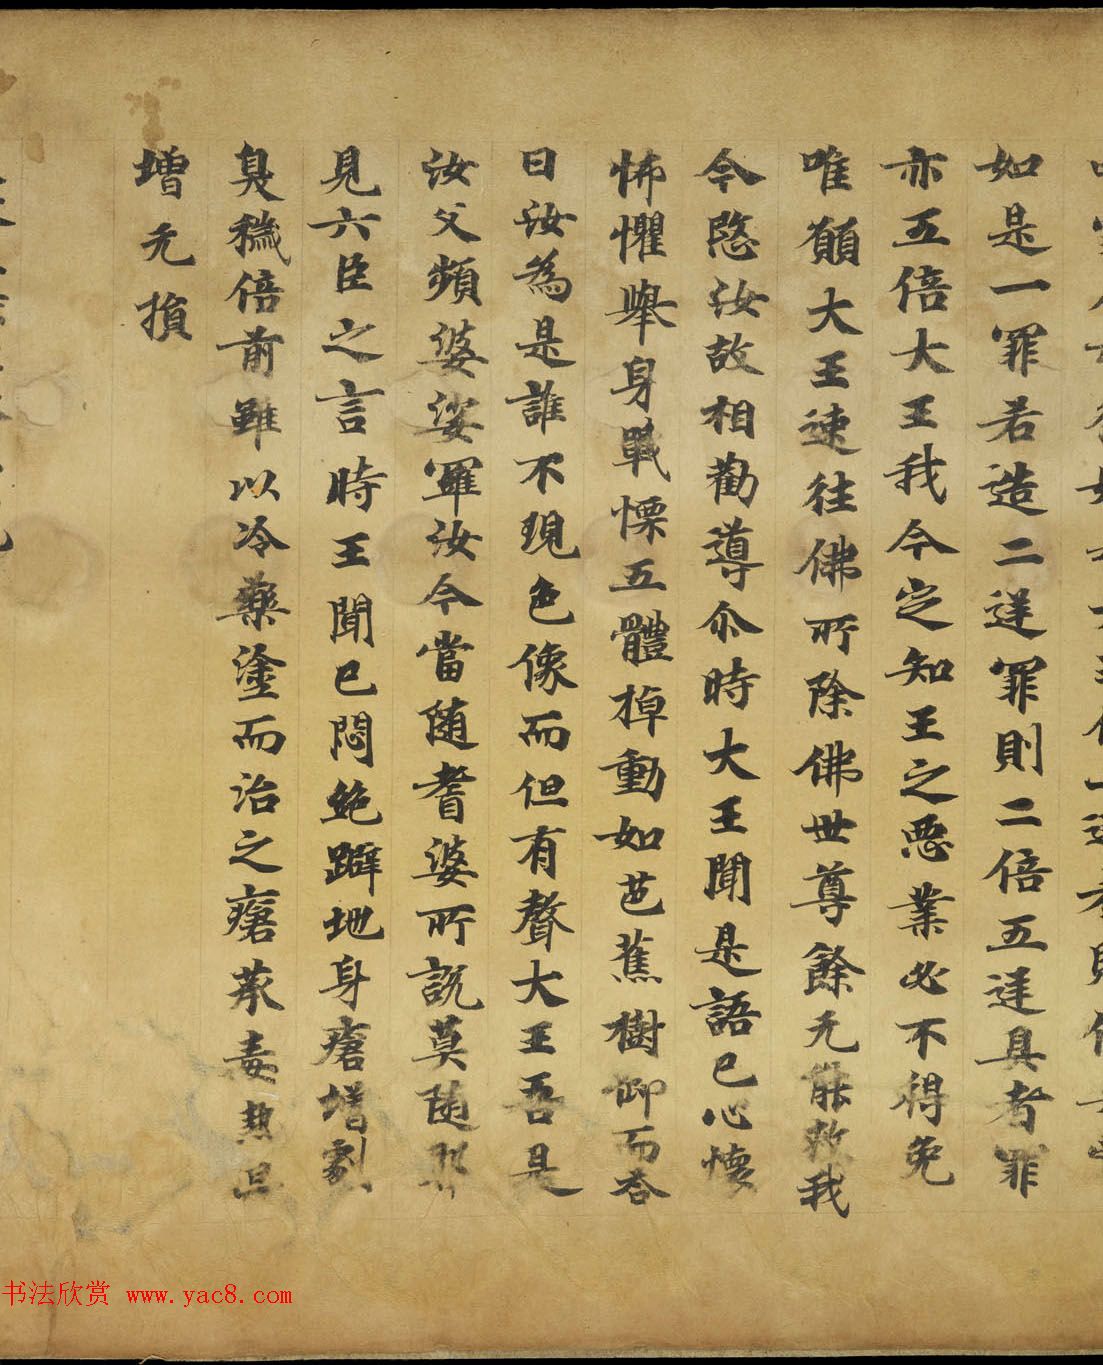 如是一罪若造二逆罪則二倍五逆具者罪
亦五倍大王我今定知王之悪業必不得免
唯願大王速往佛所除佛世尊餘无能救我
今愍汝故相勸導尒時大王聞是語已心懐
怖懼舉身戰慄五體掉動如芭蕉樹仰而荅
曰汝為是誰不現色像而但有聲大王吾是
汝父頻婆娑羅汝今當随耆婆所説莫随邪
見六臣之言時王聞已悶絶躃地身瘡增劇
臭穢倍前雖以冷藥塗而治之瘡蒸毒熱但
增无損
书法欣赏 www.yac8.com